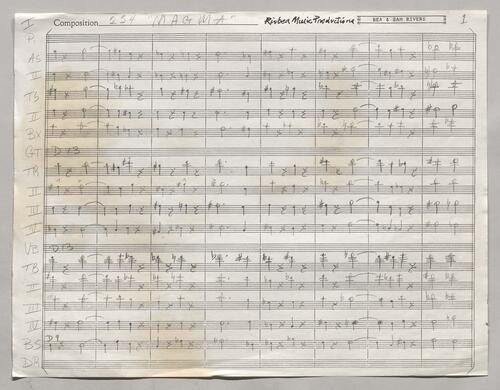 I Composition 254 "MAGMA" Rivbea Music Productions BEA & SAM RIVERS 1
P.
AS
II
TS
II
BX
GT D13
TR
II
III
IV
VB D13
TB
II
III
IV
BS D9
DR